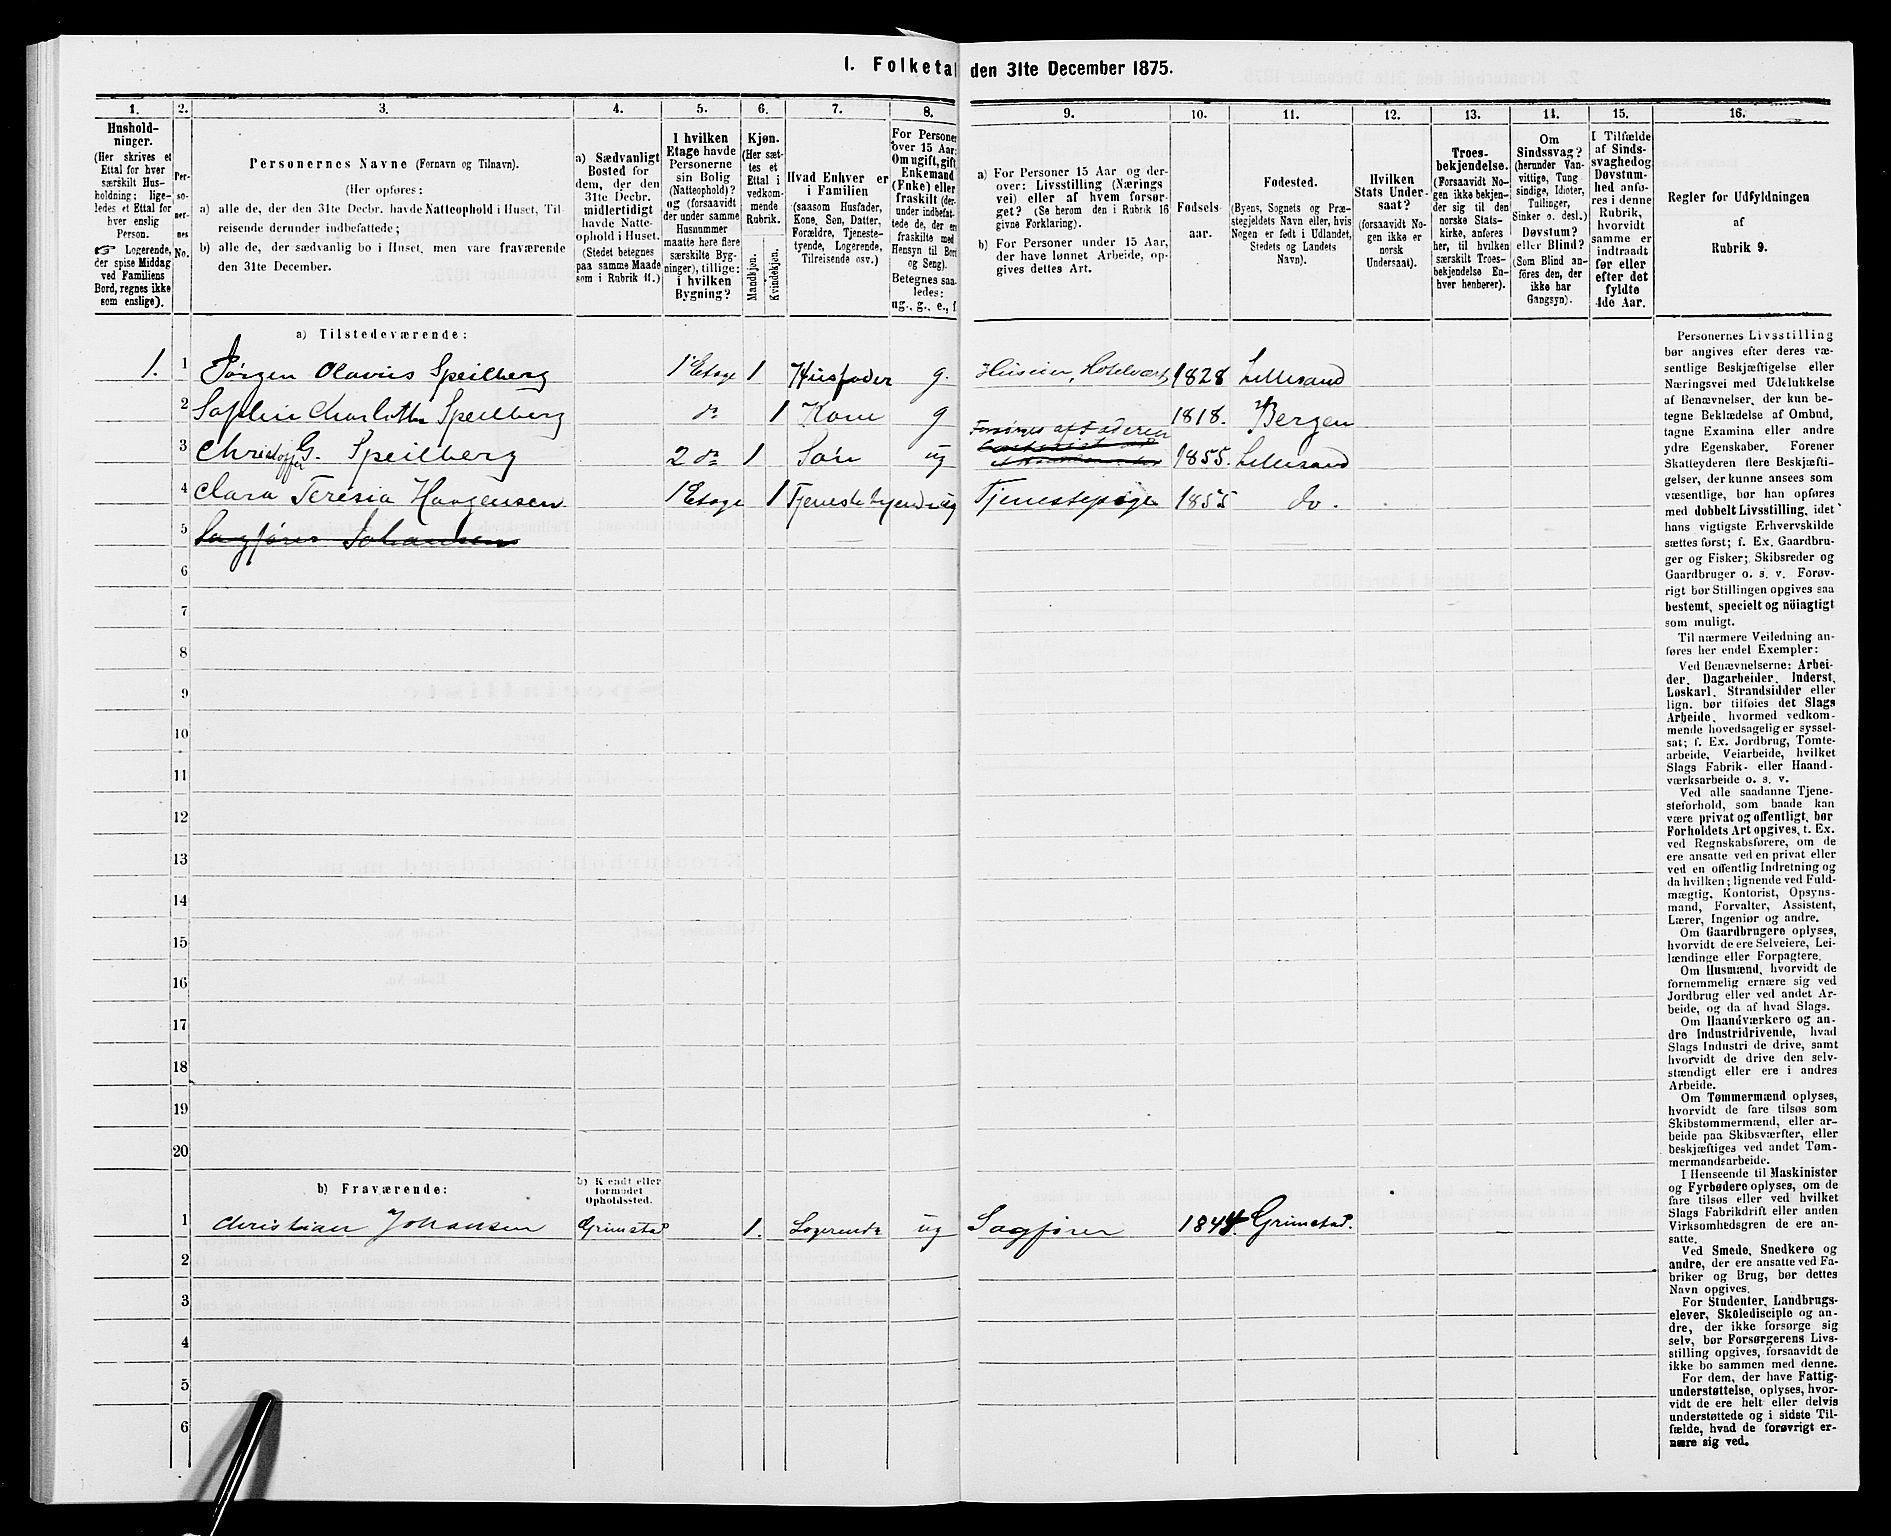 I. Folketal den 31te December 1875.
1. 2. 3. 4. 5. 6. 7. 8. 9. 10. 11. 12. 13. 14. 15. 16.
Hushold-
ninger.
(Her skrives et
Ettal for hver
særskilt Hus-
holdning; lige-
ledes et Ettal for
hver enslig
Person.
☞ Logerende,
der spise Middag
ved Familiens
Bord, regnes ikke
som enslige).
Per-
so-
ner-
nes
No.
Personernes Navne (Fornavn og Tilnavn).
(Her opføres:
a) alle de, der den 31te Decbr. havde Natteophold i Huset, Til-
reisende derunder indbefattede;
b) alle de, der sædvanlig bo i Huset, men vare fraværende
den 31te December.
a) Sædvanligt
Bosted for
dem, der den
31te Decbr.
midlertidigt
havde Natte-
ophold i Huset.
(Stedet betegnes
paa samme Maade
som i Rubrik 11.)
I hvilken
Etage havde
Personerne
sin Bolig
(Natteophold)?
og (forsaavidt
der under samme
Husnummer
maatte høre flere
særskilte Byg-
ninger), tillige:
i hvilken
Bygning?
Kjøn.
(Her sæt-
tes et
Ettal i
vedkom-
mende
Rubrik.
Mandkjøn.
Kvindekjøn.
Hvad Enhver er
i Familien
(saasom Husfader,
Kone, Søn, Datter,
Forældre, Tjeneste-
tyende, Logerende,
Tilreisende osv.)
For Personer
over 15 Aar:
Om ugift, gift,
Enkemand
(Enke) eller
fraskilt (der-
under indbefat-
tede de, der ere
fraskilte med
Hensyn til Bord
og Seng).
Betegnes saa-
ledes:
ug., g., e., f.
a) For Personer 15 Aar og der-
over: Livsstilling (Nærings
vei) eller af hvem forsør-
get? (Se herom den i Rubrik 16
givne Forklaring).
b) For Personer under 15 Aar,
der have lønnet Arbeide, op-
gives dettes Art.
Fødsels-
aar.
Fødested.
(Byens, Sognets og Præ-
stegjeldets Navn eller, hvis
Nogen er født i Udlandet,
Stedets og Landets
Navn).
Hvilken
Stats Under-
saat?
(forsaavidt No-
gen ikke er
norsk
Undersaat).
Troes-
bekjendelse.
(Forsaavidt No-
gen ikke bekjen-
der sig til den
norske Stats-
kirke, anføres
her, til hvilken
særskilt Troes-
bekjendelse En-
hver henhører).
Om
Sindssvag?
(herunder Van-
vittige, Tung
sindige, Idioter,
Tullinger,
Sinker o. desl.)
Døvstum?
eller Blind?
(Som Blind an-
føres den, der
ikke har
Gangsyn).
I Tilfælde
af Sinds-
svaghed og
Døvstum-
hed anfø-
res i denne
Rubrik,
hvorvidt
samme er
indtraadt
før eller
efter det
fyldte
4de Aar.
Regler for Udfyldningen
af
Rubrik 9.
a) Tilstedeværende:
1. 1 Jørgen Olavus Speilberg 1 Etage 1 Husfader g. Huseier, Hotelvært 1828 Lillesand
2 Sophie Charlothe Speilberg do 1 Kone g 1818. Bergen
3 Christoffer G. Speilberg 2 do 1 Søn ug Forsørges af Faderen 1855. Lillesand
4 Clara Teresia Haagensen 1 Etage 1 Tjenestetyende ug Tjenestepige 1855 do.
5 Sagfører Johansen
6
7
8
9
10
11
12
13
14
15
16
17
18
19
20
b) Fraværende:
b) Kendt eller
formodet
Opholdssted.
1 Christian Johansen Grimstad 1. Logerende ug Sagfører 1844. Grimstad.
2
3
4
5
6
Personernes Livsstilling
bør angives efter deres væ-
sentlige Beskjæftigelse eller
Næringsvei med Udelukkelse
af Benævnelser, der kun be-
tegne Beklædelse af Ombud,
tagne Examina eller andre
ydre Egenskaber. Forener
Skatteyderen flere Beskjæfti-
gelser, der kunne ansees som
væsentlige, bør han opføres
med dobbelt Livsstilling, idet
hans vigtigste Erhvervskilde
sættes først; f. Ex. Gaardbru-
ger og Fisker; Skibsreder og
Gaardbruger o. s. v. Forøv-
rigt bør Stillingen opgives saa
bestemt, specielt og nöiagtigt
som muligt.
Til nærmere Veiledning an-
føres her endel Exempler:
Ved Benævnelserne: Arbei-
der, Dagarbeider, Inderst,
Løskarl, Strandsidder eller
lign. bør tilføies det Slags
Arbeide, hvormed vedkom-
mende hovedsagelig er syssel-
sat; f. Ex. Jordbrug, Tomte-
arbeide, Veiarbeide, hvilket
Slags Fabrik- eller Haand-
værksarbeide o. s. v.
Ved alle saadanne Tjene-
steforhold, som baade kan
være privat og offentligt, bør
Forholdets Art opgives, t. Ex.
ved Regnskabsførere, om de
ere ansatte ved en privat eller
ved en offentlig Indretning og
da hvilken; lignende ved Fuld-
mægtig, Kontorist, Opsyns-
mand, Forvalter, Assistent,
Lærer, Ingeniør og andre.
Om Gaardbrugere oplyses,
hvorvidt de ere Selveiere, Lei-
lændinge eller Forpagtere.
Om Husmænd, hvorvidt de
fornemmelig ernære sig ved
Jordbrug eller ved andet Ar-
beide, og da af hvad Slags.
Om Haandværkere og an-
dre Industridrivende, hvad
Slags Industri de drive, samt
hvorvidt de drive den selv-
stændigt eller ere i andres
Arbeide.
Om Tømmermænd oplyses,
hvorvidt de fare tilsøs som
Skibstømmermænd, eller ar-
beide paa Skibsværfter, eller
beskjæftiges ved andet Tøm-
mermandsarbeide.
I Henseende til Maskinister
og Fyrbødere oplyses, om de
fare tilsøs eller ved hvilket
Slags Fabrikdrift eller anden
Virksomhedsgren de ere an-
satte.
Ved Smede, Snedkere og
andre, der ere ansatte ved Fa-
briker og Brug, bør dettes
Navn opgives.
For Studenter, Landbrugs-
elever, Skoledisciple og an-
dre, der ikke forsørge sig
selv, bør Forsørgerens Livs-
stilling opgives, forsaavidt de
ikke bo sammen med denne.
For dem, der have Fattig-
understøttelse, oplyses, hvor-
vidt de ere helt eller delvis
understøttede og i sidste Til-
fælde, hvad de forøvrigt er-
nære sig ved.